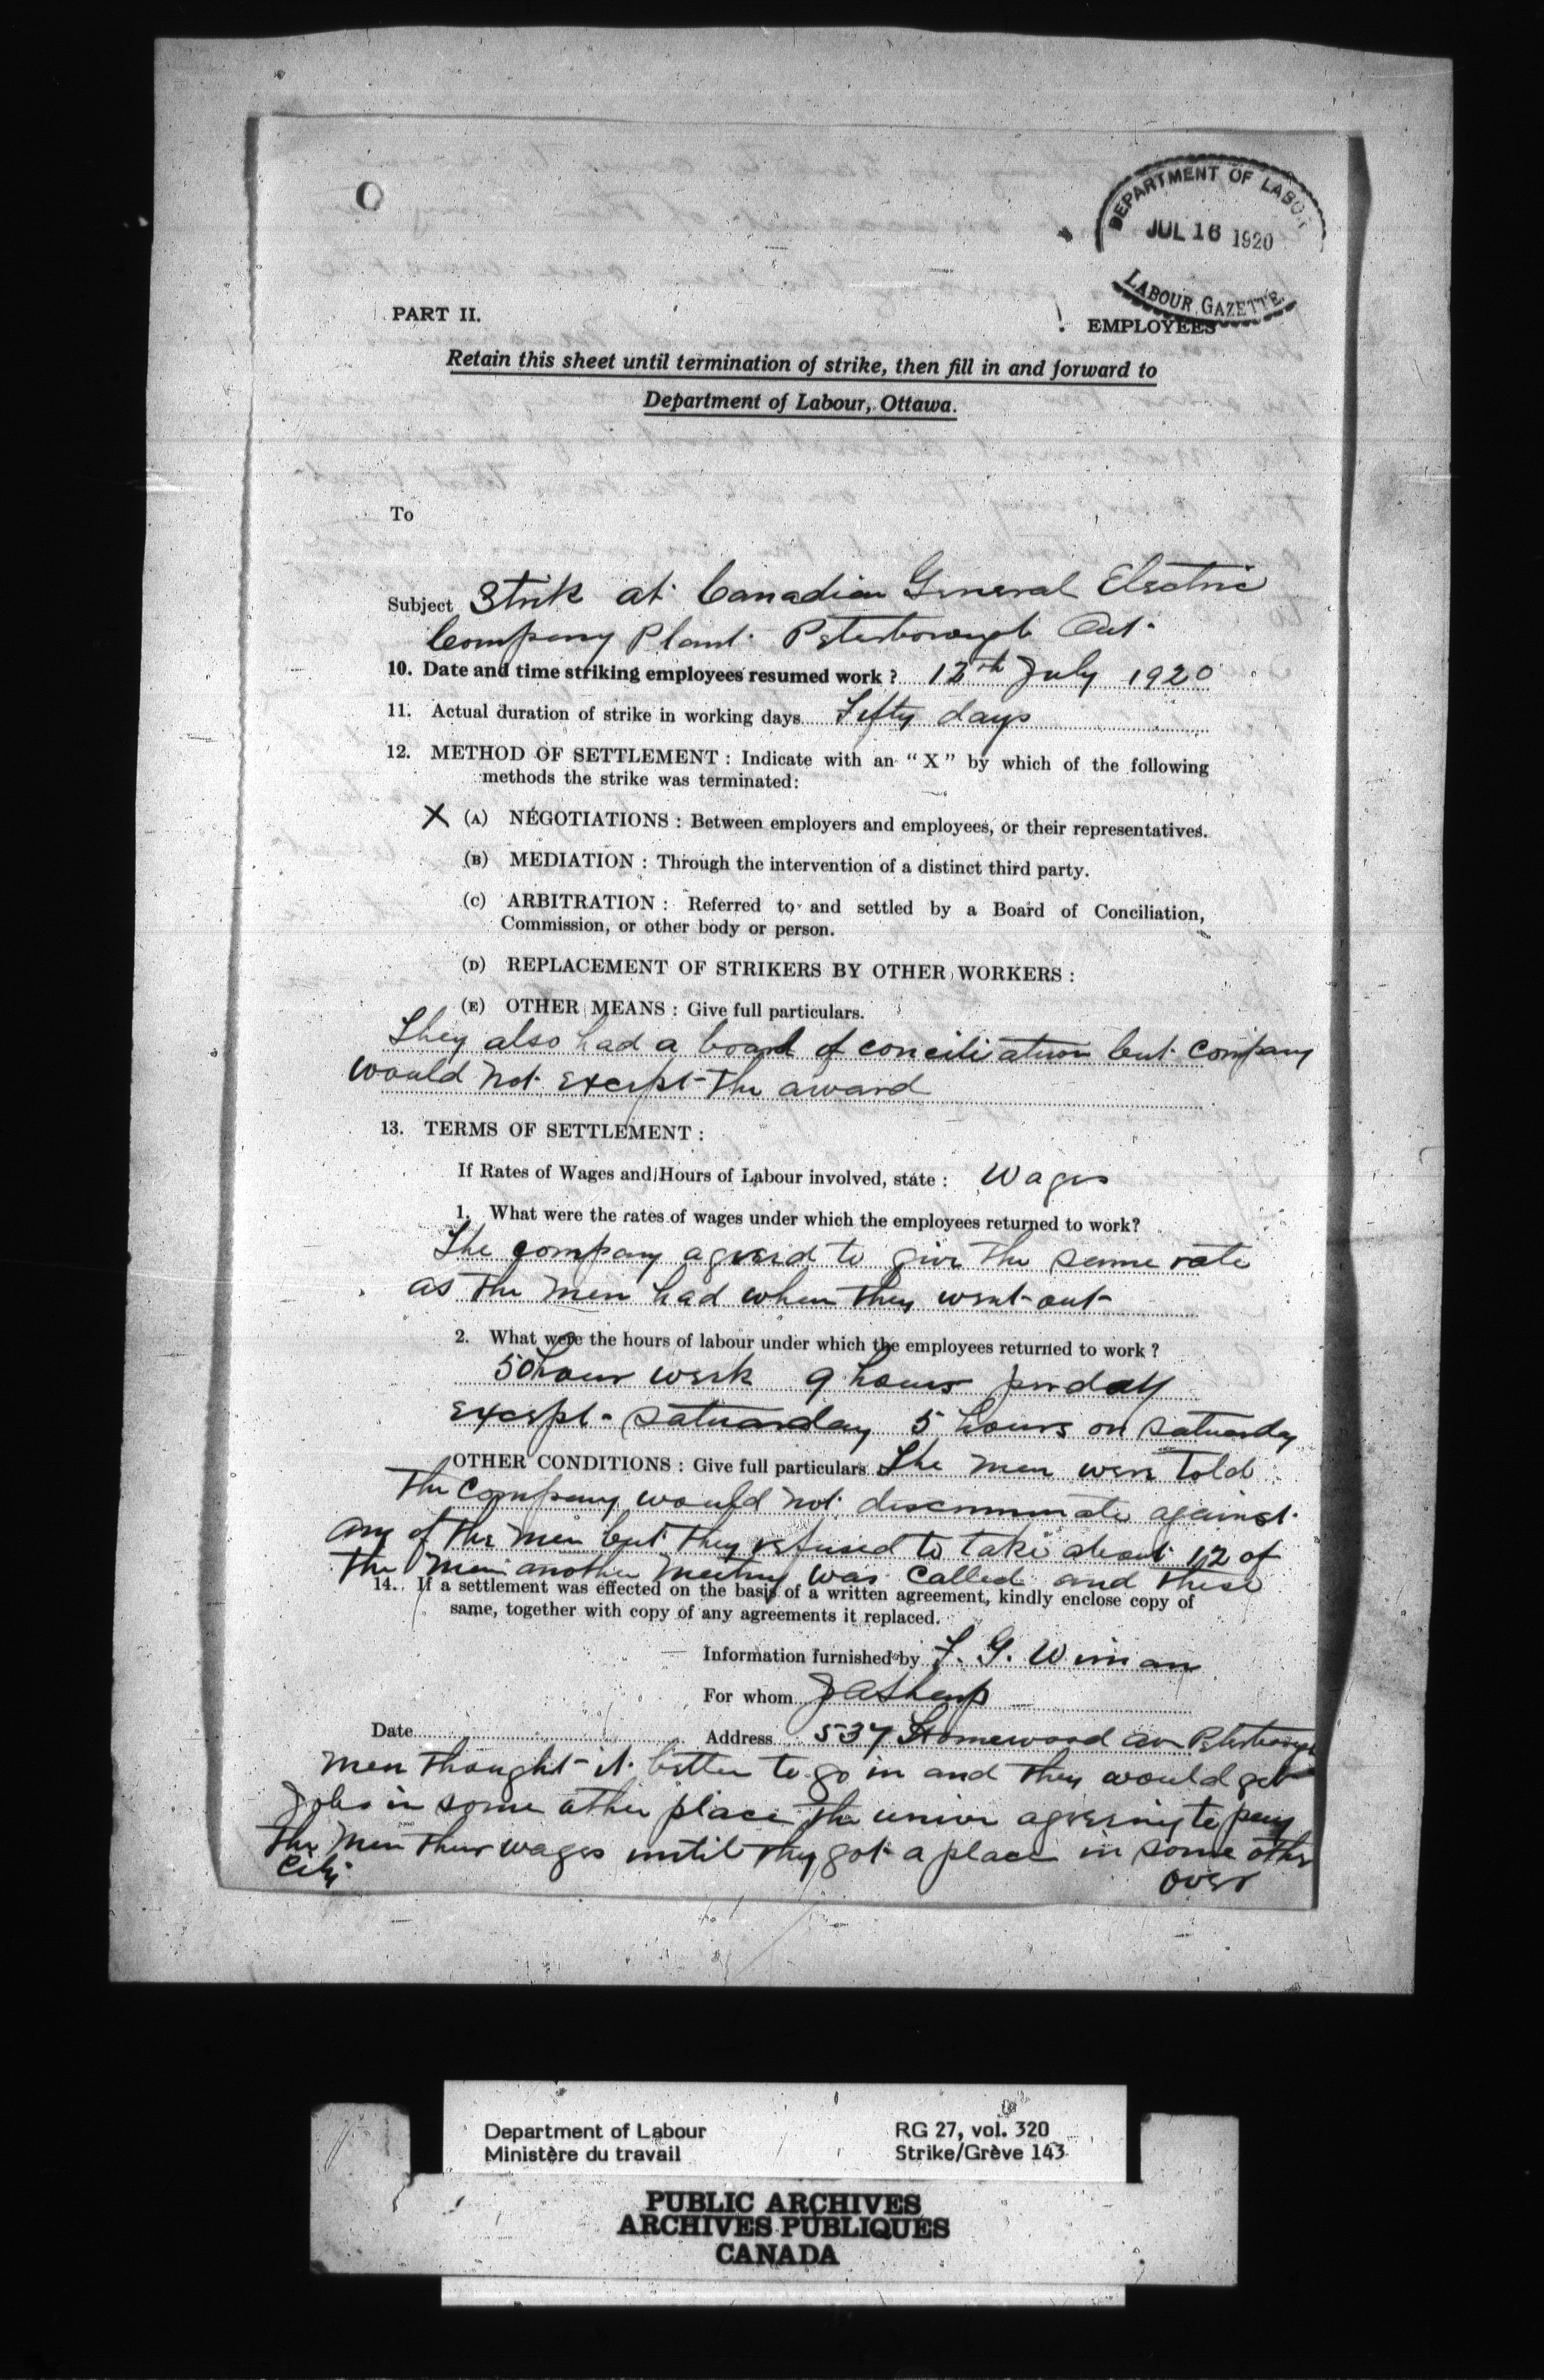 DEPARTMENT OF LABOUR
JUL 16 1920
LABOUR GAZETTE
PART II.
EMPLOYEES
Retain this sheet until termination of strike, then fill in and forward to
Department of Labour, Ottawa.
To
Subject Strik at Canadian General Electric
Company Plant Peterborough Ont.
10. Date and time striking employees resumed work ? 12th July 1920
11. Actual duration of strike in working days Fifty days
12. METHOD OF SETTLEMENT : Indicate with an "X" by which of the following
methods the strike was terminated:
X (A) NEGOTIATIONS : Between employers and employees, or their representatives.
(B) MEDIATION : Through the intervention of a distinct third party.
(C) ARBITRATION : Referred to and settled by a Board of Conciliation,
Commission, or other body or person.
(D) REPLACEMENT OF STRIKERS BY OTHER WORKERS :
(E) OTHER MEANS : Give full particulars.
They also had a board of conciliation but company
would not except the award
13. TERMS OF SETTLEMENT :
If Rates of Wages and Hours of Labour involved, state : Wages
1. What were the rates of wages under which the employees returned to work?
The company agreed to give the same rate
as the men had when they went out
2. What were the hours of labour under which the employees returned to work ?
50 hour week 9 hours per day
except Saturday 5 hours on Saturday
OTHER CONDITIONS : Give full particulars The men were told
the Company would not discriminate against
any of the men but they refused to take about 12 of
the men another meeting was called and these
14. If a settlement was effected on the basis of a written agreement, kindly enclose copy of
same, together with copy of any agreements it replaced.
Information furnished by F. G.
For whom
Date Address 537 Homewood av Peterborough
men thought it better to go in and they would get
Jobs in some other place the union agreeing to pay
the men their wages until they got a place in some other
City
over
Department of Labour
Ministère du travail
RG 27, vol. 320
Strike/Grève 143
PUBLIC ARCHIVES
ARCHIVES PUBLIQUES
CANADA